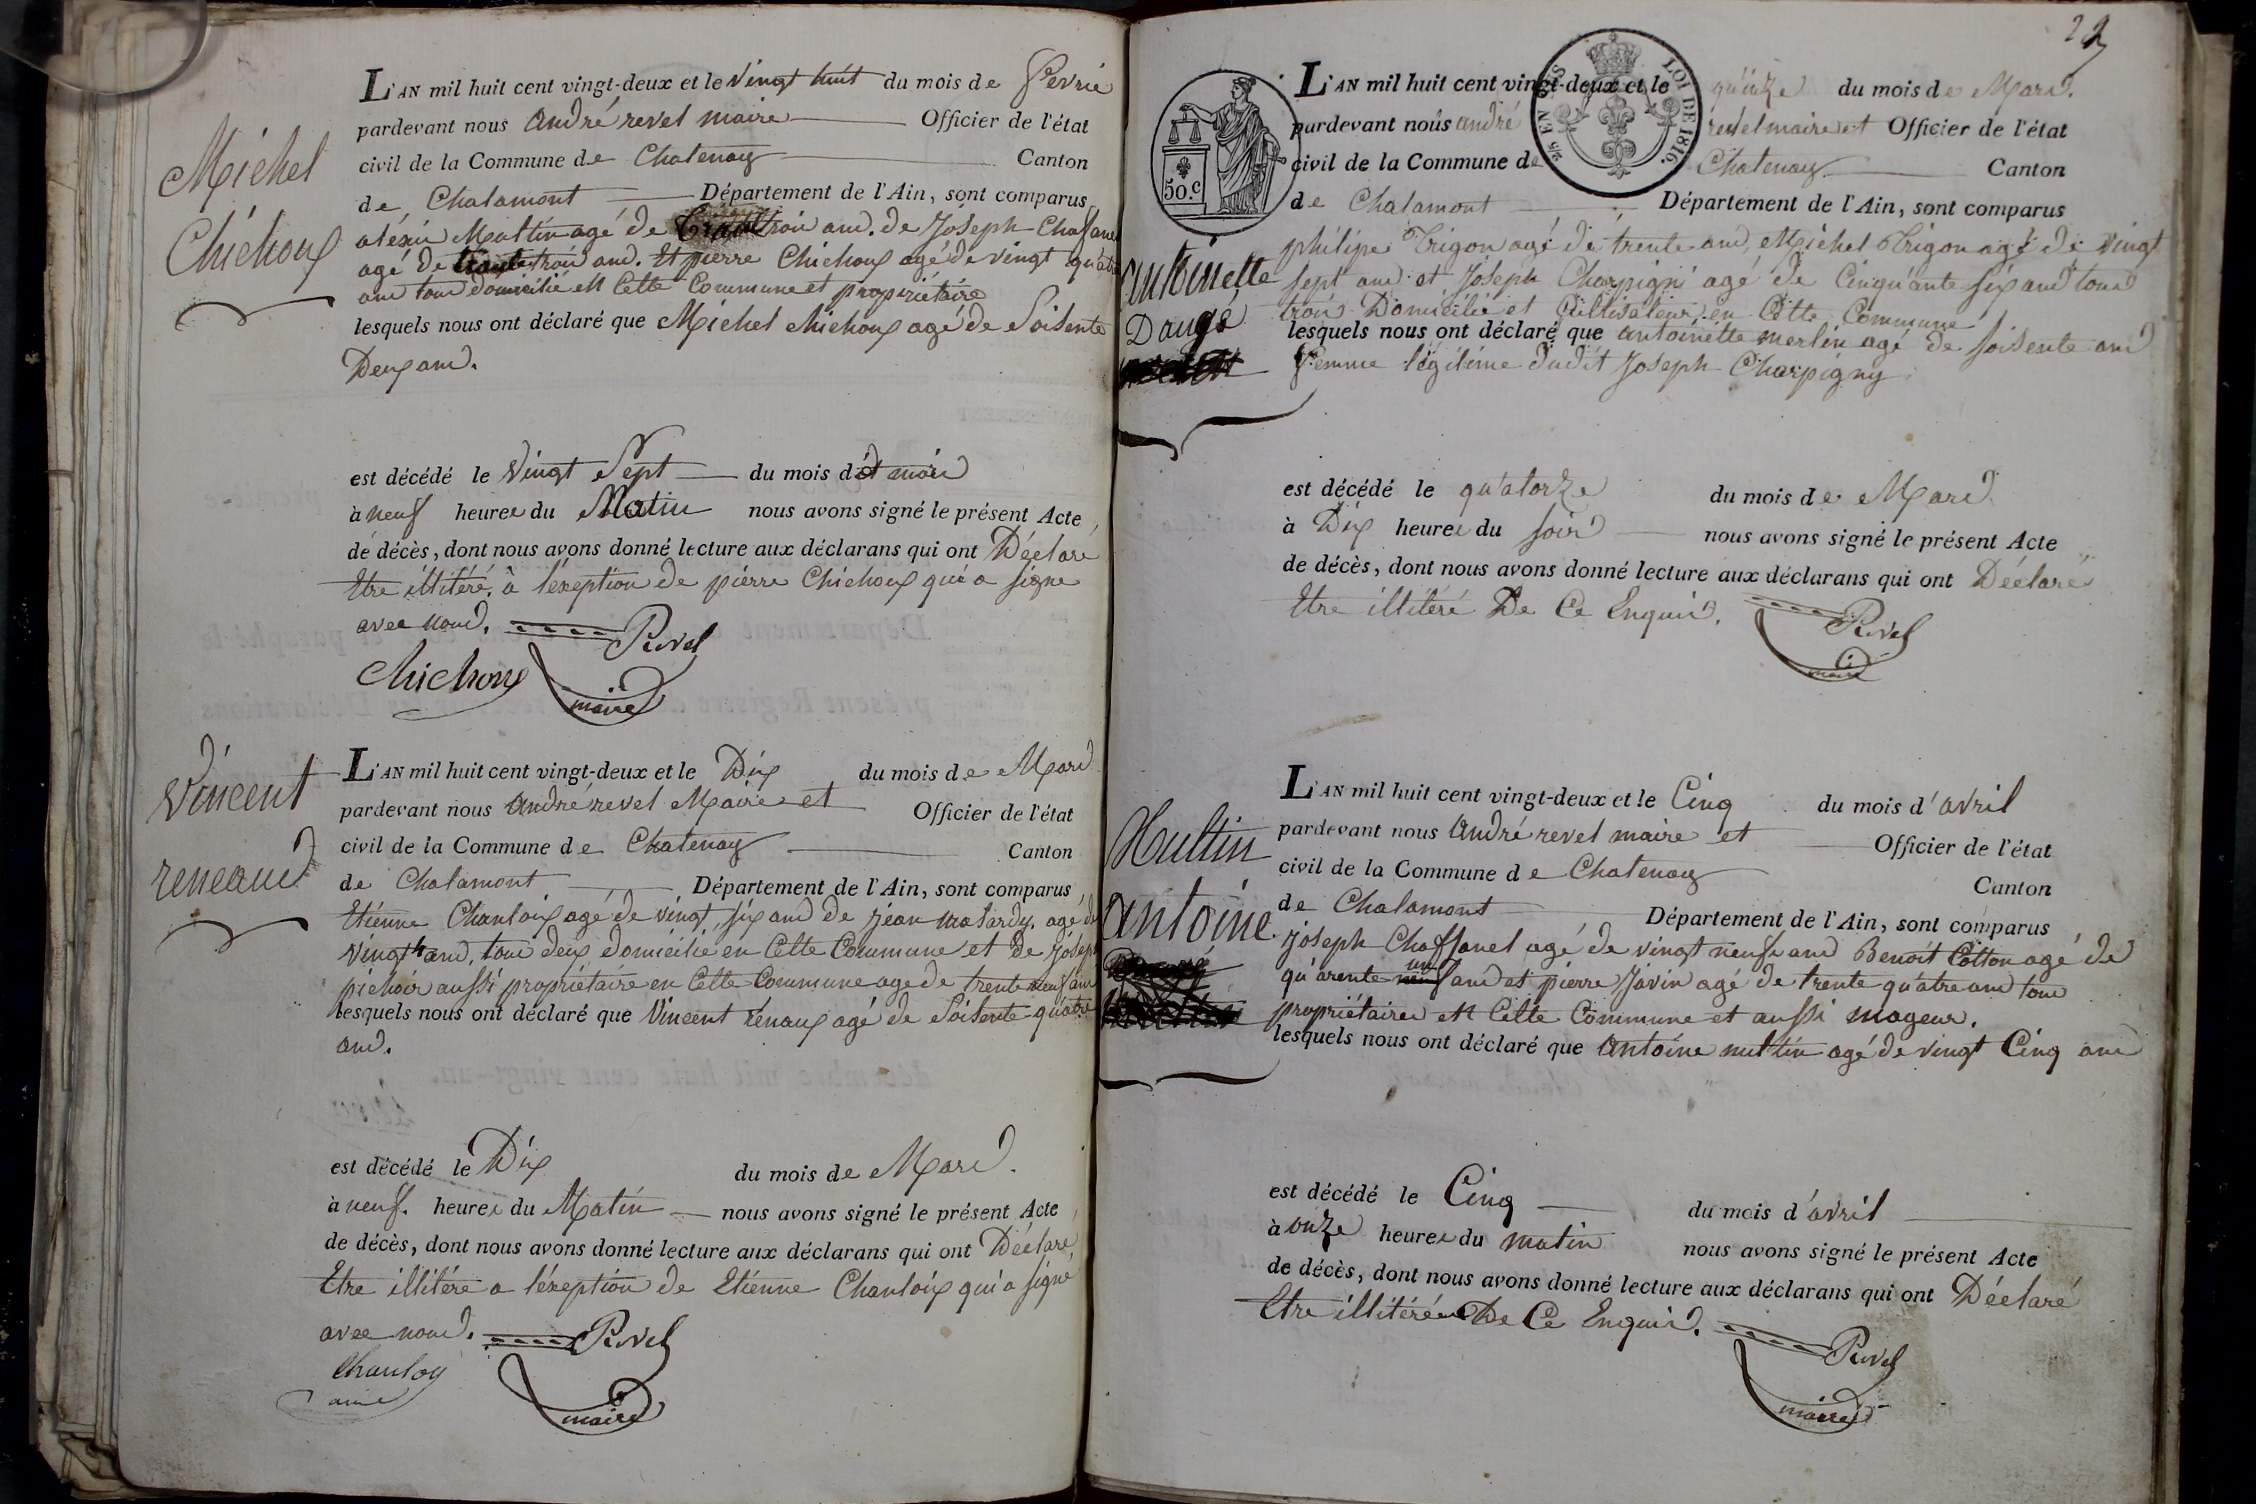 Michel
Chichoux
L'AN mil huit cent vingt-deux et le Vingt huit du mois de Fevrie
pardevant nous André revel maire Officier de l'état
civil de la Commune de Chatenay Canton
de Chalamont Département de l'Ain, sont comparus
aléxis Multin agé de trois ans. de Jóseph Chafanel
agé de trente trois ans. Et pierre Chichoux agé de vingt quatre
ans tous domicilié en Cette Commune et propriétaire
lesquels nous ont déclaré que Michel chichoux agé de Soisente
Deux ans.
est décédé le Vingt Sept du mois dót mois
à neuf heures du Matin nous avons signé le présent Acte
de décès, dont nous avons donné lecture aux déclarans qui ont Déclaré
Etre illitéré, à l'éxeption de pierre Chichoux qui a signe
avec nous. Revel
Chichoux
maire
Vincent
reneaud
L'AN mil huit cent vingt-deux et le Dix du mois de Mars
pardevant nous André revel Maire et Officier de l'état
civil de la Commune de Chatenay Canton
de Chalamont Département de l'Ain, sont comparus
Etienne Chanloix agé de vingt six ans de jean matardy. agé de
Vingt ans, tous deux domicilié en Cette Commune et de Jóseph
pichoir aussi propriétaire en Cette Commune age de trente neuf ans
lesquels nous ont déclaré que Vincent rénaux agé de Soisente quatre
ans.
est décédé le Dix du mois de Mars.
à neuf. heures du Matin nous avons signé le présent Acte
de décès, dont nous avons donné lecture aux déclarans qui ont Déclaré
Etre illitéré a l'éxeption de Etienne Chanloix qui a signé
avec nous. Revel
Chanloy
ainé
maire
29
50.c
EN SUS
LOI DE 1816.
antoinette
Daugé
L'AN mil huit cent vingt-deux et le quinze du mois de Mars.
pardevant nous andré revel maire et Officier de l'état
civil de la Commune de Chatenay Canton
de Chalamont Département de l'Ain, sont comparus
philipe Trigon agé de trente ans, Michel Trigon agé de vingt
sept ans et Jóseph Charpigni agé de Cinquante six ans tous
trois Domicilié et Cultivateur en Cette Commune
lesquels nous ont déclaré que antoinette merlin agé de soisente ans
Femme légitime dudit Joseph Charpigny
est décédé le quatorze du mois de Mars
à Dix heures du soir nous avons signé le présent Acte
de décès, dont nous avons donné lecture aux déclarans qui ont Déclaré
Etre illitéré De Ce Enquis. Revel
maire
Multin
antoine
L'AN mil huit cent vingt-deux et le Cinq du mois d'avril
pardevant nous André revel maire et Officier de l'état
civil de la Commune de Chatenay Canton
de Chalamont Département de l'Ain, sont comparus
joseph Chaffanel agé de vingt neuf ans Benoit Cotton agé de
quarente un ans et pierre Javin agé de trente quatre ans tous
propriétaires en Cette Commune et aussi mageur.
lesquels nous ont déclaré que antoine multin agé de vingt Cinq ans
est décédé le Cinq du mois d'avril
à onze heures du matin nous avons signé le présent Acte
de décès, dont nous avons donné lecture aux déclarans qui ont Déclaré
Etre illitéré De Ce Enquis. Revel
maire